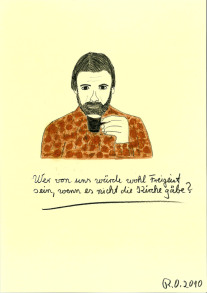 Wer von uns würde wohl Freizeit
sein, wenn es nicht die Kirche gäbe?
R.O. 2010